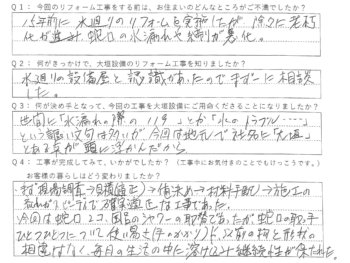 Q1:今回のリフォーム工事をする前は、お住まいのどんなところがご不満でしたか?
15年前に水廻りのリフォームを実施したが 徐々に老朽
化が進み 蛇口の水漏れや締りが悪化。
Q2:何がきっかけで、大垣設備のリフォーム工事を知りましたか?
水廻りの設備屋と認識があったのでまず一に相談
した。
Q3:何が決め手となって、今回の工事を大垣設備にご用命くださることになりましたか?
世間に「水漏れの際の119」とか「水のトラブル……」
という謳い文句は多いが 今回は地元で社名に「大垣」
とある名が頭に浮かんだから
Q4:工事が完成してみて、いかがでしたか?(工事中にお気付きのことでもけっこうです。)
お客様の暮らしはどう変わりましたか?
現場調査→見積(適正)→値決め→材料手配→施工の
確実適正な工事であった。
今回は蛇口2コ、風呂のシャワーの取替であったが 蛇口の取手
ひとつひとつについて 使い易さ(手のかかり)下、以前の物と形状の
相違はなく、毎日の生活の中に溶け込み継続性が保たれた。